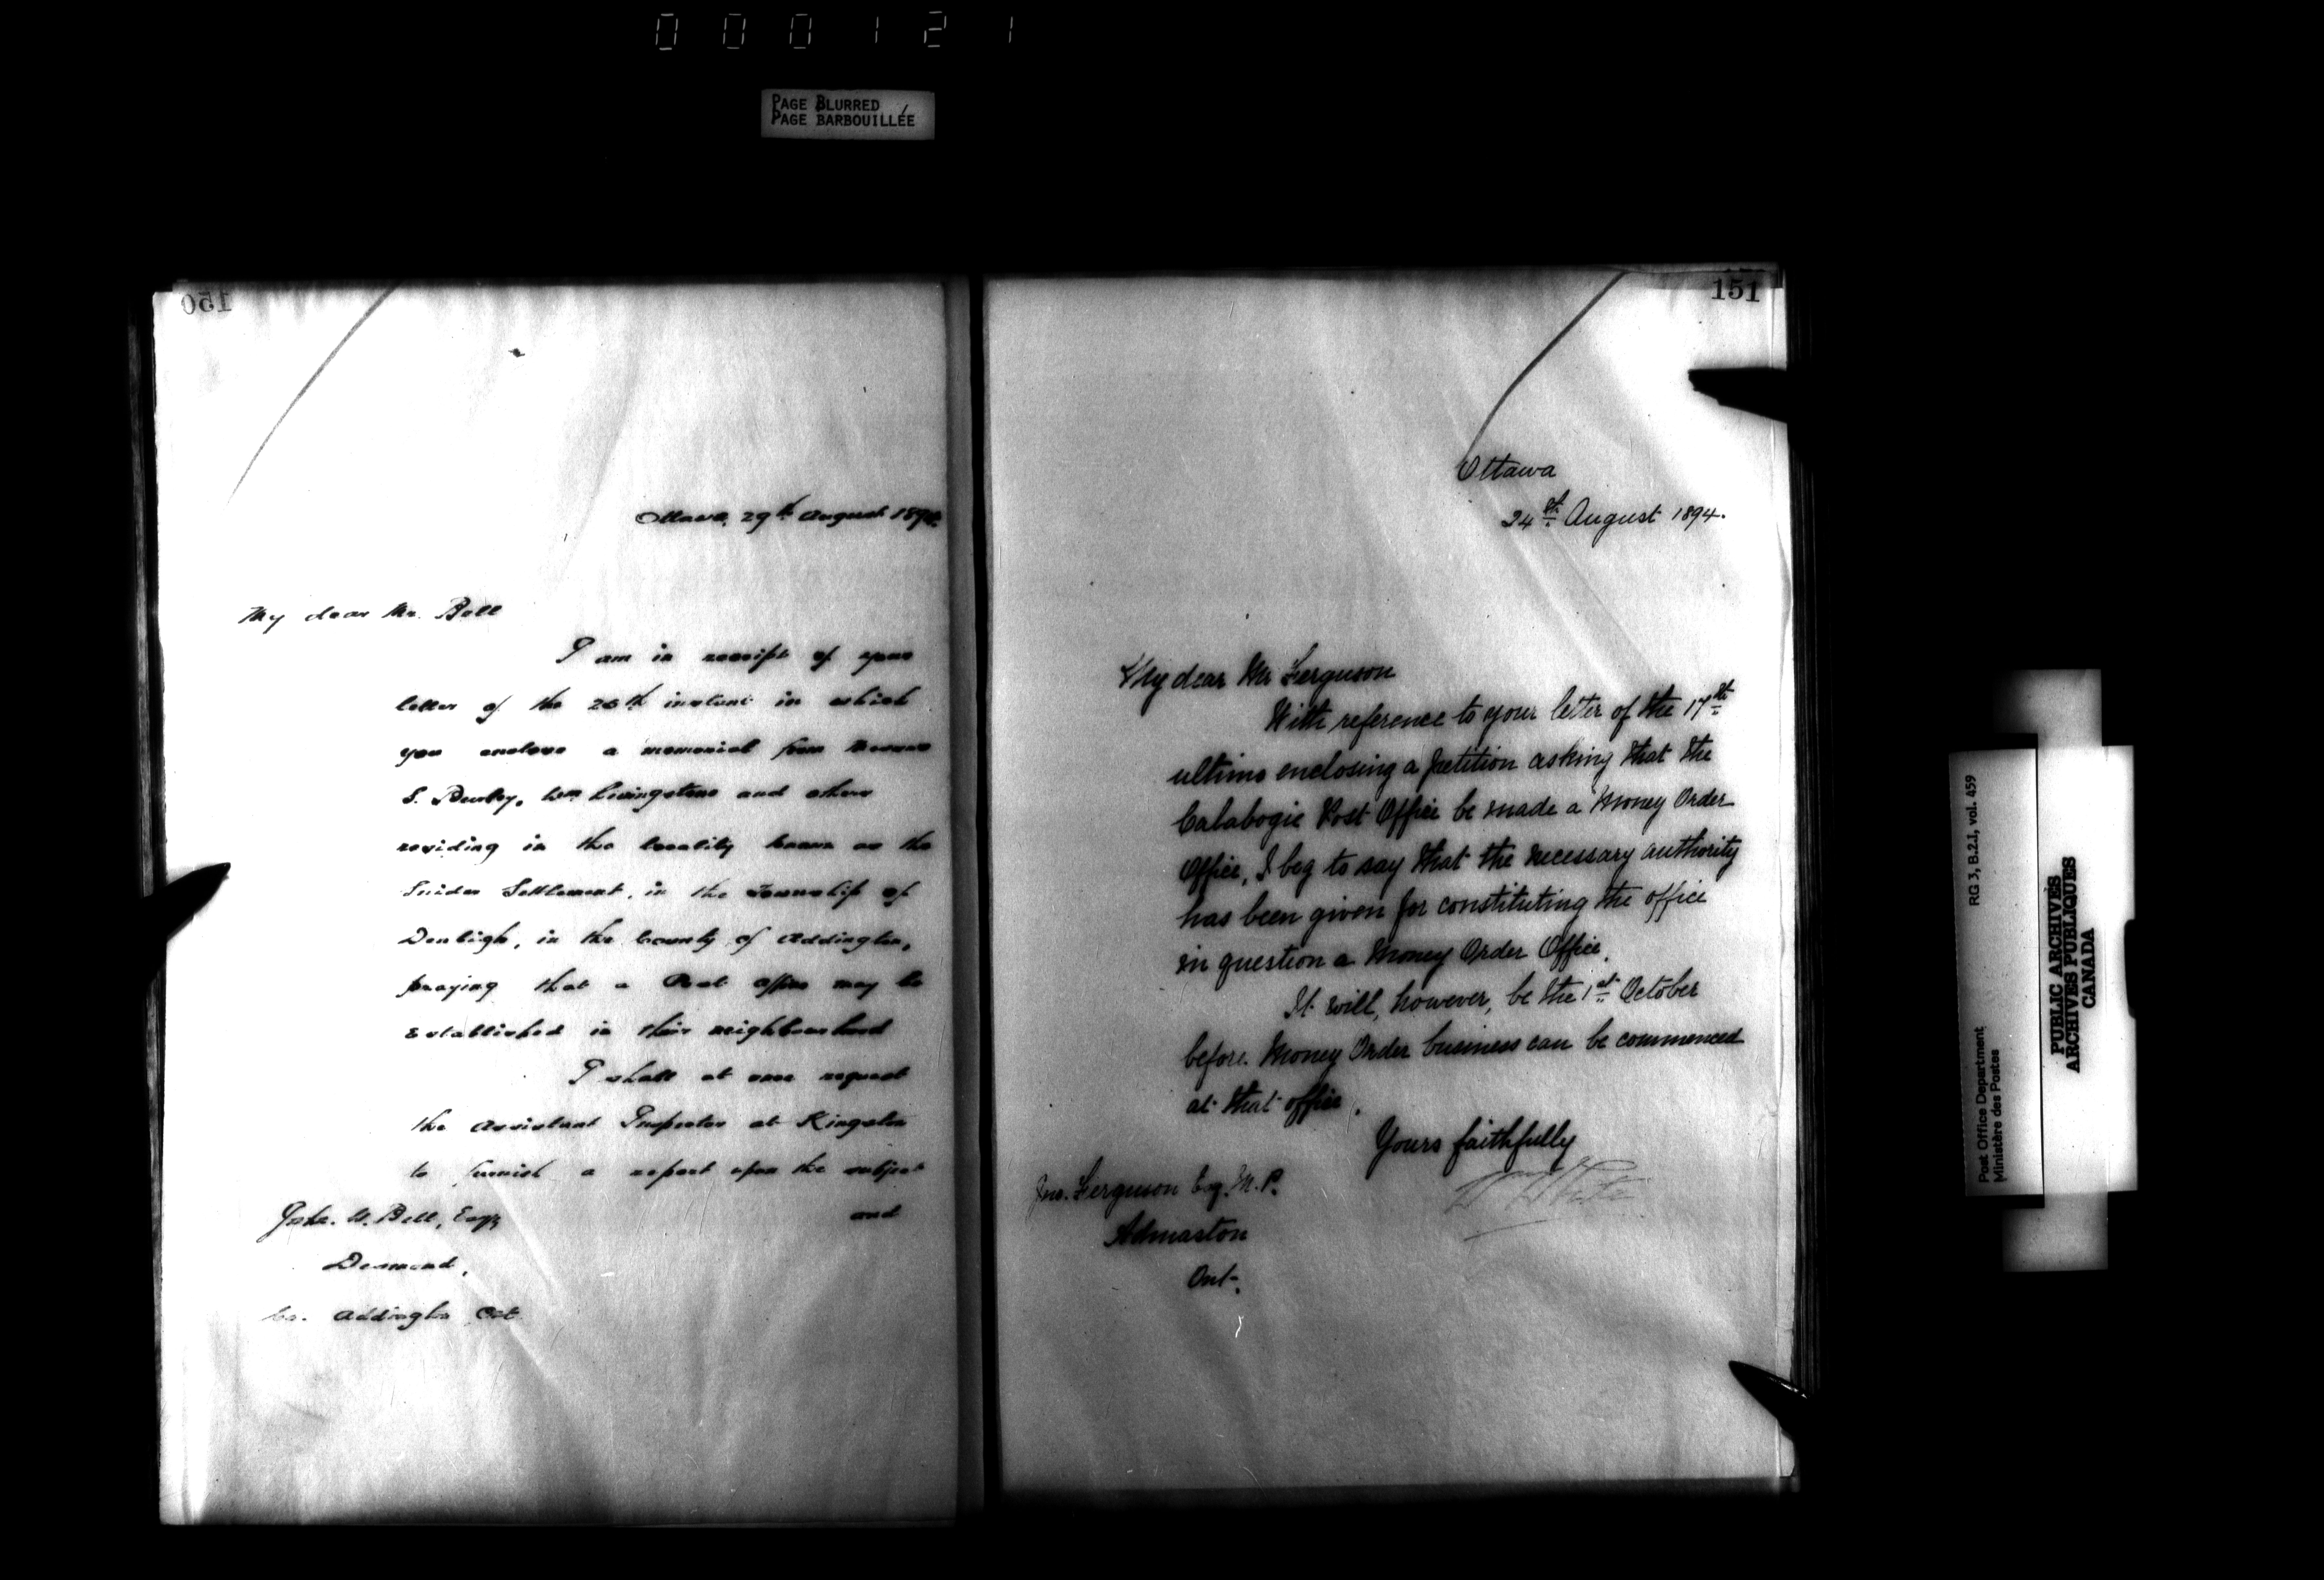 000121
PAGE BLURRED
PAGE BARBOUILLÉE
150
Ottawa, 29th August 1894
My dear Mr. Bell
I am in receipt of your
letter of the 26th instant in which
you enclose a memorial from Messrs
S. Wm Livingstone and others
residing in the locality known as the
Snider Settlement, in the Township of
Denbigh, in the County of Addington,
praying that a Post Office may be
established in their neighbourhood
I shall at once request
the Assistant Inspector at Kingston
to furnish a report upon the subject
and
W. Bell, Esq
Desmond,
Co. Addington Ont
151
Ottawa
24th August 1894.
My dear Mr Ferguson
With reference to your letter of the 17th
ultimo enclosing a petition asking that the
Calabogie Post Office be made a Money Order
Office, I beg to say that the necessary authority
has been given for constituting the office
in question a Money Order Office.
It will, however, be the 1st October
before Money Order business can be commenced
at that office.
Yours faithfully
Jno. Ferguson Esq. M.P.
Admaston
Ont.
Post Office Department
Ministère des Postes
RG 3, B.2.1, vol. 459
PUBLIC ARCHIVES
ARCHIVES PUBLIQUES
CANADA